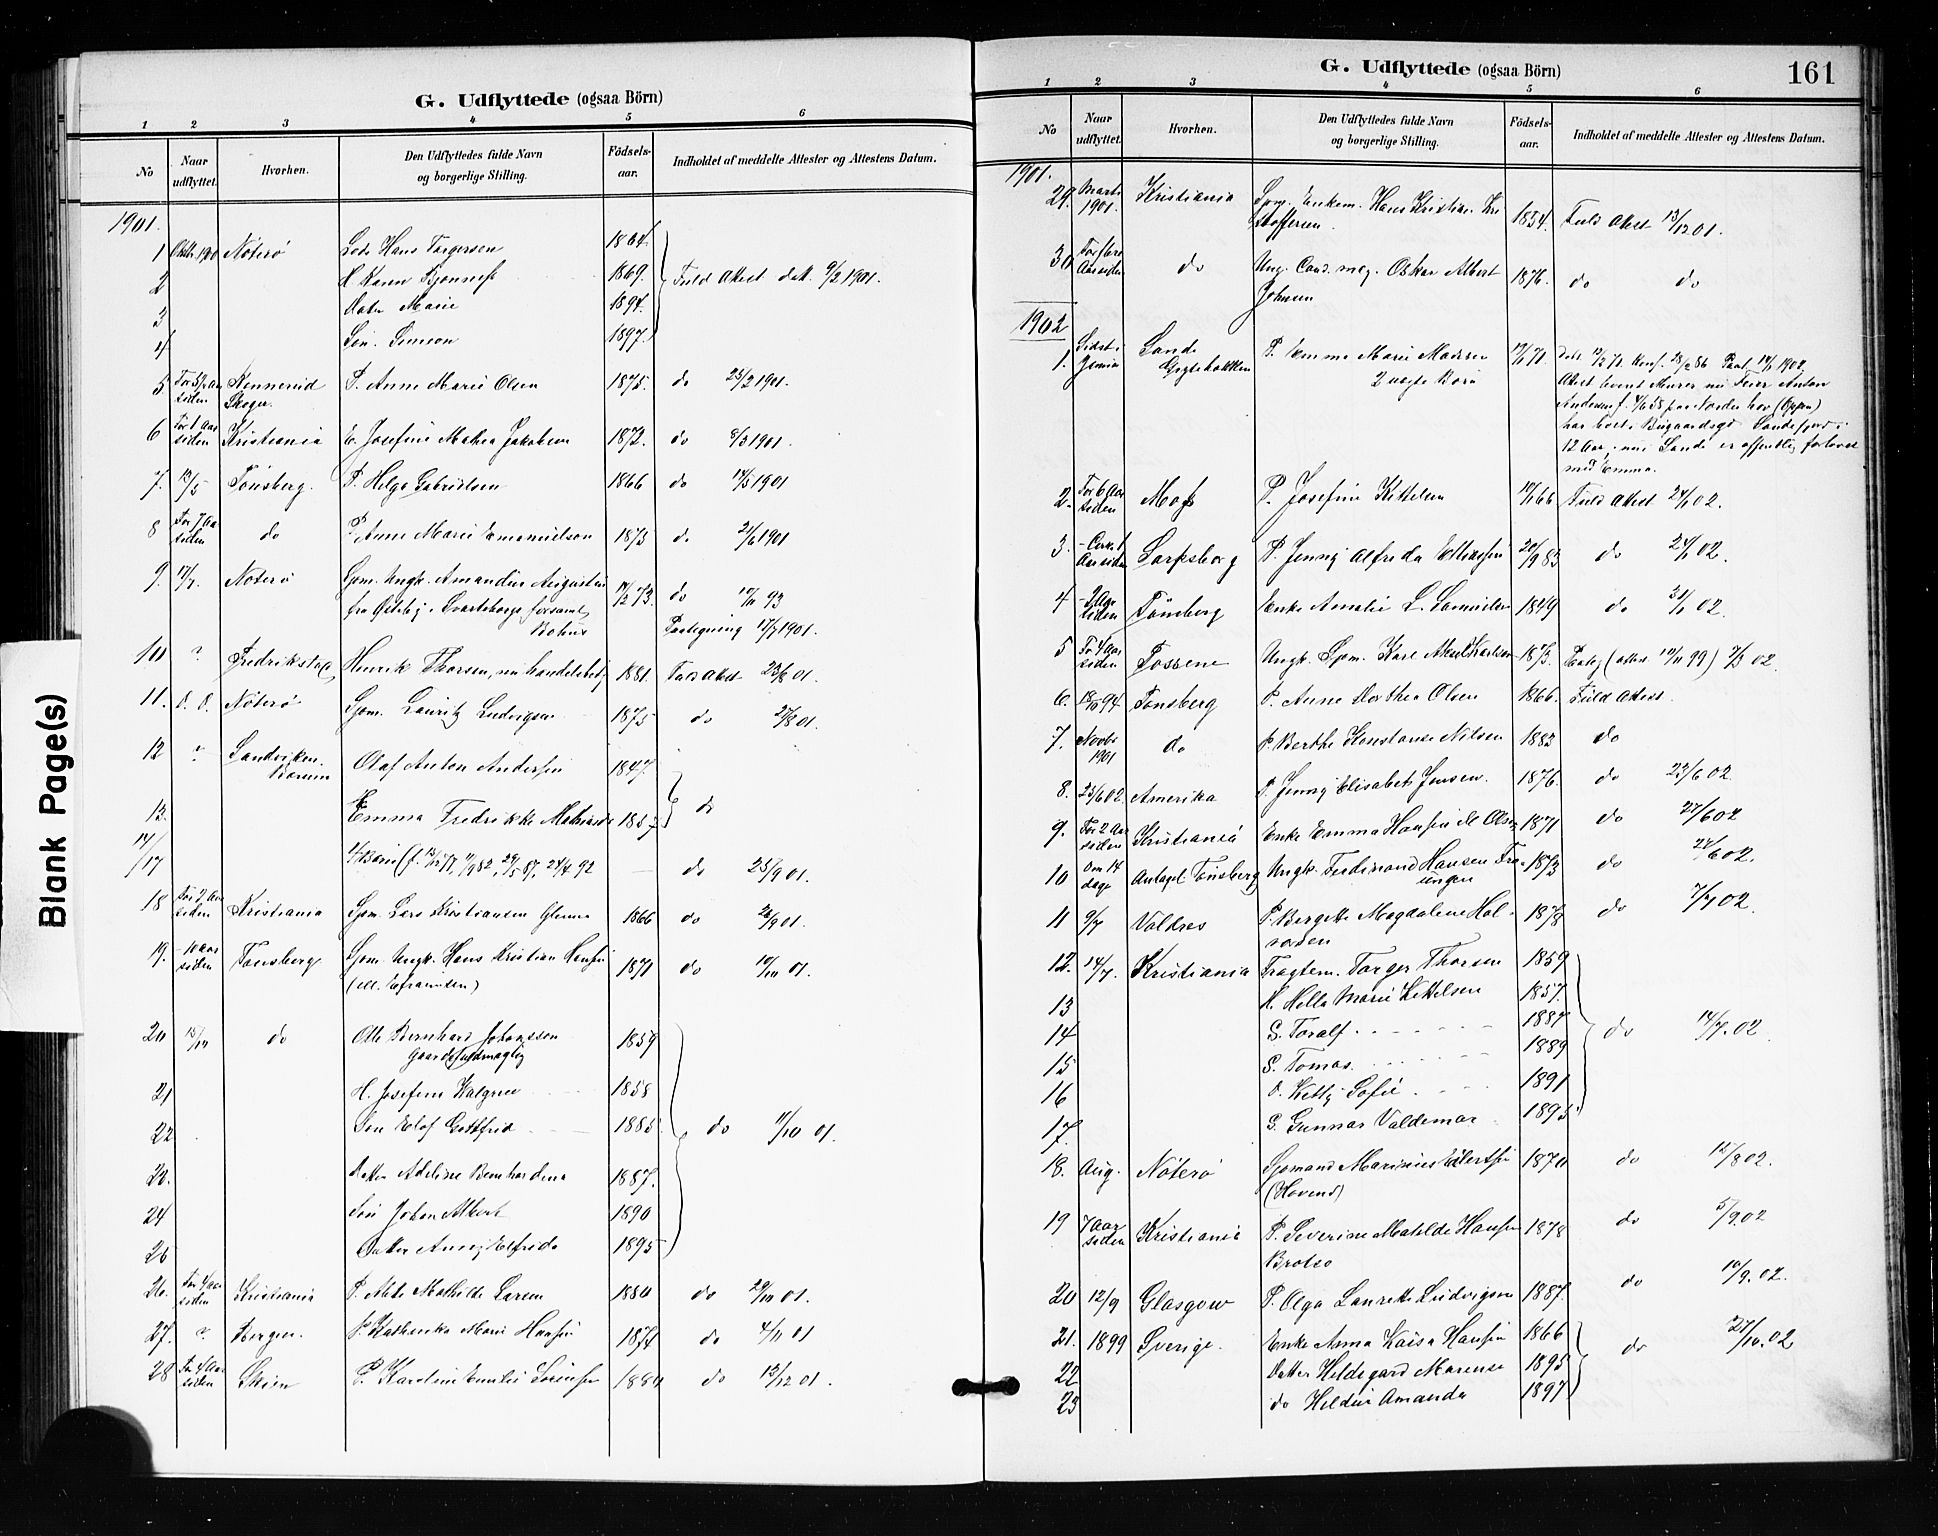 Blank Page(s)
G. Udflyttede (ogsaa Börn)
1 2 3 4 5 6
No
Naar udflyttet.
Hvorhen.
Den Udflyttedes fulde Navn og borgerlige Stilling.
Födsels-aar.
Indholdet af meddelte Attester og Attestens Datum.
1901.
1 Nöterö Lods Hans Torgersen 1864
2 1869. Fuld Attest dat. 9/2 1901.
3 Dater Marie 1894.
4 Sön 1897.
5 For 3/4 Aar siden Skoger. P. Anne Marie Olsen 1875. do 25/2 1901.
6 For 1 Aar siden Kristiania E. Josefine Mathea Jakobsen 1872. do 8/3 1901.
7. 12/5 Tönsberg. P. Helga Gabrielsen 1866 do 14/5 1901
8 For 7 Aar siden do P. Anne Marie Emanuelson 1873 do 21/6 1901
9. 17/7. Nöterö Sjöm. Ungk. Amandus Augustin 14/2 73. do 10/11 93
fra Svarteborgs forsaml, Bohus Paategning 17/7 1901.
10 ? Fredrikstad, Henrik Thorsen, nu handelsbetj. 1881. Fuld Attest 23/8 01.
11. D. D. Nöterö Sjöm. Lauritz Ludvigsen 1875 do 27/8 01.
12 ? Sandviken. Bærum Olaf Anton Andersen 1847.
13. Emma Fredrikke 1857 do
14/17 4 Börn (f. 82, 29/5 87, 24/4 92 — do 25/9 01.
18 For 2 Aar siden Kristiania Sjöm. Lars Kristiansen 1866 do 01.
19. – 10 Aar siden Tönsberg Sjöm. Ungk. Hans Kristian Hansen 1871 do 10/10 01.
(ell. Efraimsen)
20 15/10 do Otto Bernhard Johanssen 1859
21 H. Josefine 1858
22 Sön Elof Gottfrid 1885. do 11/10 01.
23. Datter Adeline Bernhardine 1887.
24 Sön Johan Albert 1890
25 Datter Anny Elfrida 1895
26. For 4 Aar siden Kristiania P. Mathilde Larsen 1880 do 29/10 01.
27. ? Bergen. P. Kathinka Marie Hansen 1874 do 4/11 01
28 For 4 Aar siden Skien P. Karoline Emilie 1880 do 13/12 01.
G. Udflyttede (ogsaa Börn)
161
1 2 3 4 5 6
No
Naar udflyttet.
Hvorhen.
Den Udflyttedes fulde Navn og borgerlige Stilling.
Födsels-aar.
Indholdet af meddelte Attester og Attestens Datum.
1901.
29. Marts 1901. Kristiania Sjöm. Enkem. Hans Kristian Kristoffersen. 1854. Fuld Attest 13/12 01.
30 For flere Aar siden do Ung. Cand. mag. Oskar Albert Johnsen 1876. do do
1902
1. Sidst i Sande P. Emma Marie Madsen 71.
2 uægte Börn
Attest Murer nu Feier Anton
har boet i Bugaardsgd. Sandefjord i
12 Aar, nu Sande er offentlig forlovet
med Emma.
2. For 6 Aar siden Moss P. Josefine Kittelsen 66 Fuld Attest 24/1 02.
3. – Cirk. 1 Aar siden Sarpsborg P. Jenny Alfreda 20/9 83 do 24/1 02.
4 – 2 Aar siden Tönsberg Enke Amalie L. Samuelsen 1849 do 31/1 02.
5 For 4 Aar siden Tossene Ungk. Sjöm. Karl Aksel Karlsen 1873. 02.
6. 94 Tönsberg P. Anne Dorthea Olsen 1866. Fuld Attest.
7. Novbr 1901 do P. Berthe Konstanse Nilsen 1882 do
8. 23/6 02. Amerika P. Jenny Elisabeth Jensen. 1876. do 23/6 02.
9. For 2 Aar siden Kristiania Enke Emma Hansine Olsen 1871 do 27/6 02
10 Om 14 dage Antagel. Tönsberg Ungk. Ferdinand Hansen 1873 do 27/6 02.
11 9/7 Valdres P. Bergitte Magdalene 1878 do 7/7 02.
12. 14/7. Kristiania Fragtem. Torger Thorsen 1859
13 H. Helle Marie Kittelsen 1857.
14 S. Toralf 1887 do 14/7. 02.
15 S. Tomas 1889
16 D. Ketty Sofie 1891
17. S. Gunnar Valdemar 1895.
18. Aug. Nöterö Sjömand Marinius Eilertsen 1870 do 12/8 02.
19 7 Aar siden Kristiania P. Severine Matilde Hansen 1878 do 5/9 02
20 12/9 Glasgow P. Olga Laurette Ludvigsen 1887. do 10/9. 02.
21. 1899 Sverige. Enke Anna Kaisa Hansen 1866
22 Datter Hildegard Marense 1895 do 27/10. 02
23 do Amanda 1897